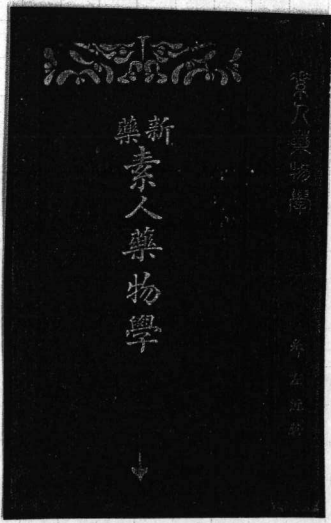 新藥
素人藥物學
素人藥物學